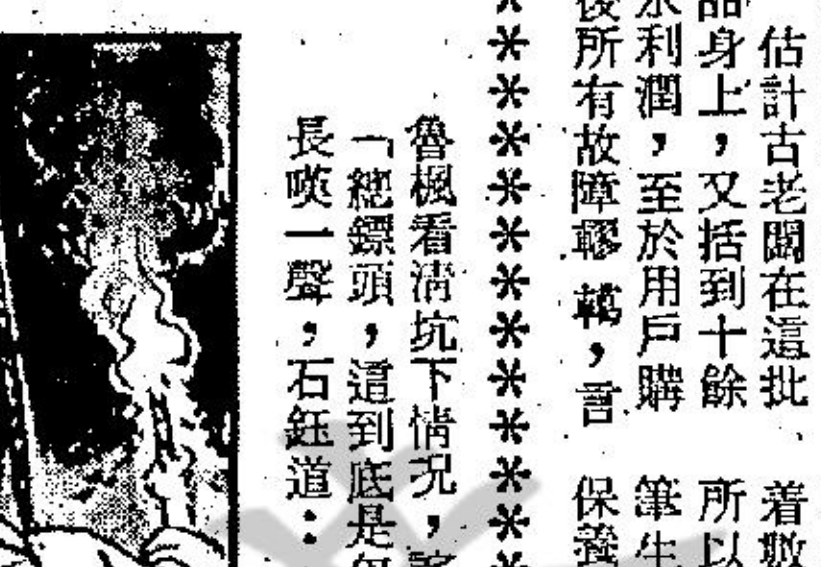 估計古老闆在這批
品身上，又括到十餘
利潤，至於用戶購
後所有故障轇轕，言
着
所以
筆生
保養
＊＊＊＊＊＊＊＊＊＊＊＊
魯楓看清坑下情況，
「總鏢頭，這到底是
長嘆一聲，石鈺道：